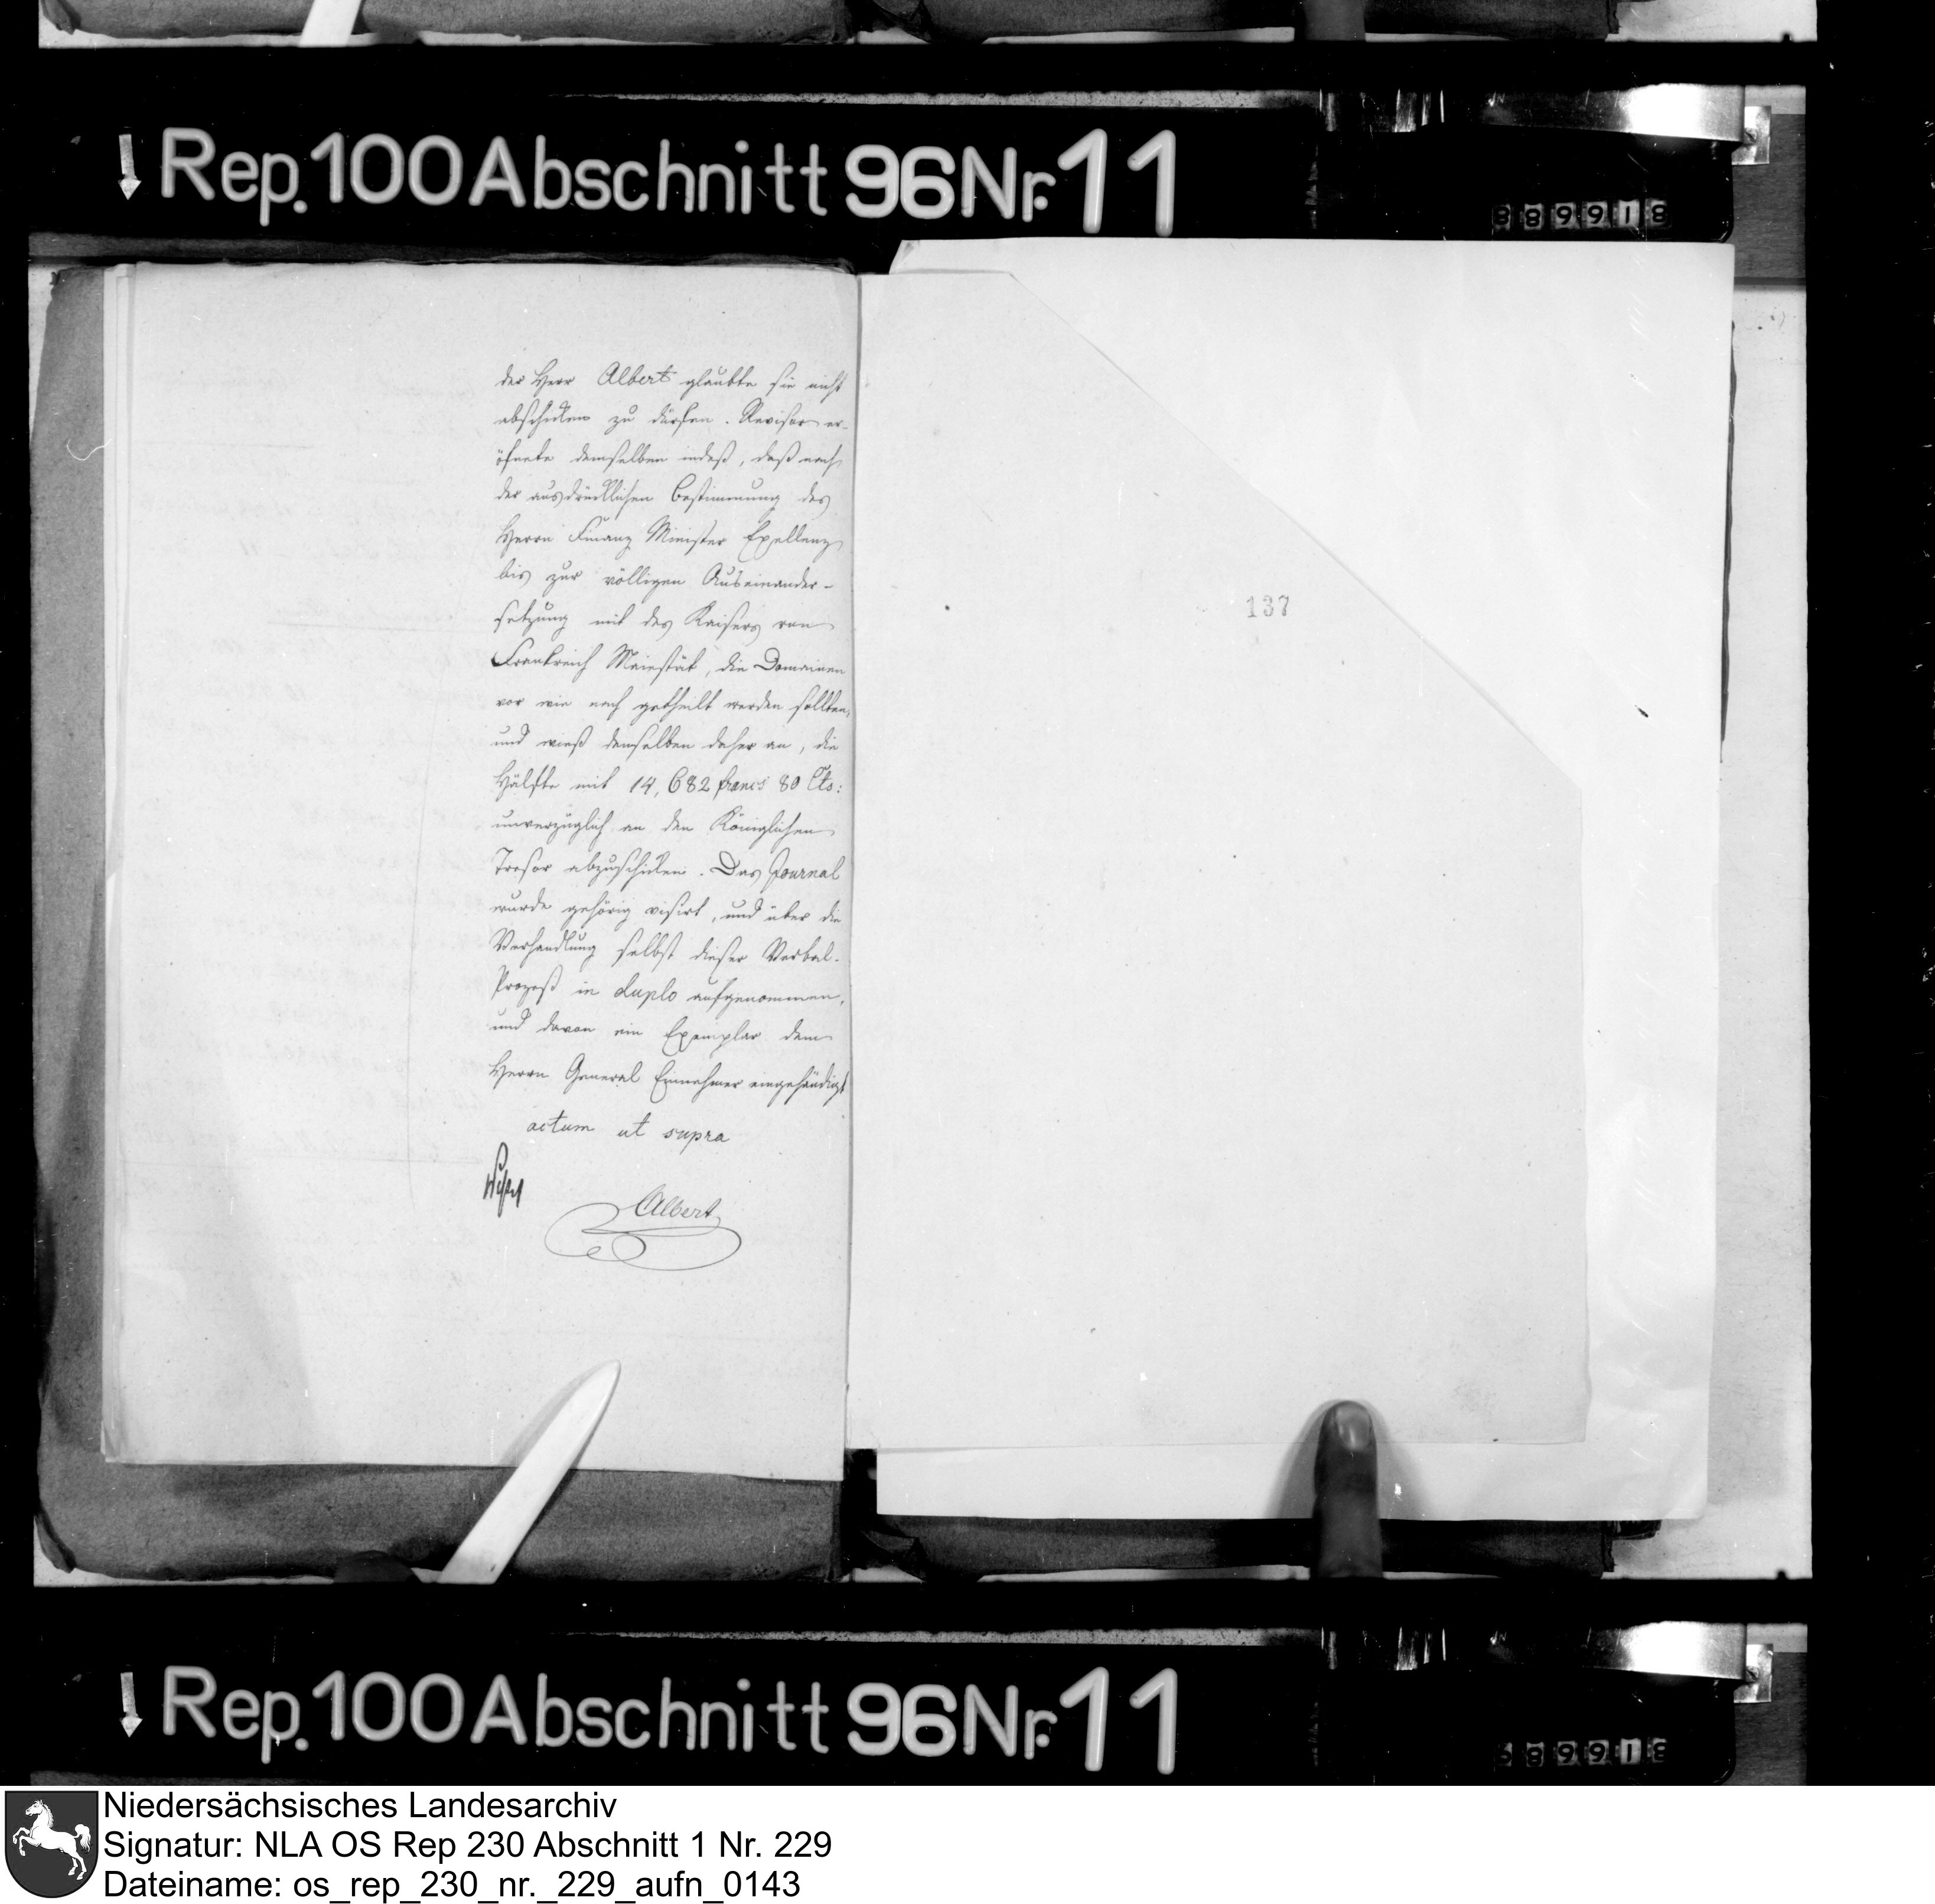 Rep. 100 Abschnitt 96 Nr. 11
der Herr Albert glaubte sie nicht
abschicken zu dürfen. Revisor er-
öfnete demselben indeß, daß nach
der ausdrücklichen Bestimmung des
Herrn Finanz Minister Exellenz
bis zur völligen Auseinander-
setzung mit des Kaisers von
Frankreich Maiestät, die Domainen
vor wie nach getheilt werden sollten,
und wieß demselben daher an, die
Hälfte mit 14,682 francs 80 Cts:
unverzüglich an den Königlichen
Tresor abzuschicken. Das Journal
wurde gehörig visirt, und über die
Verhandlung selbst dieser Verbal-
Prozeß in duplo aufgenommen,
und davon ein Exemplar dem
Herrn General Einnehmer eingehändigt
actum ut supra
Albert
137
Rep. 100 Abschnitt 96 Nr. 11
Niedersächsisches Landesarchiv
Signatur: NLA OS Rep 230 Abschnitt 1 Nr. 229
Dateiname: os_rep_230_nr._229_aufn_0143